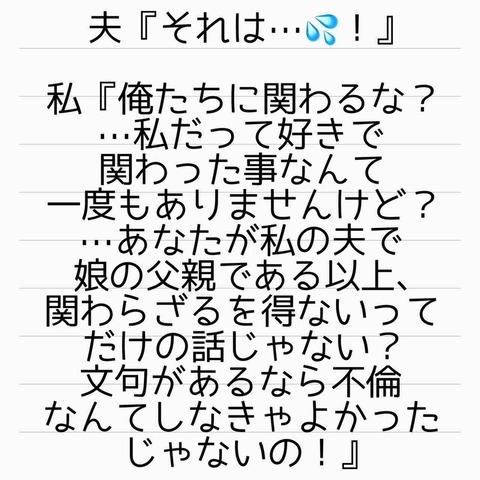 夫『それは…💦！』
私『俺たちに関わるな？
…私だって好きで
関わった事なんて
一度もありませんけど？
…あなたが私の夫で
娘の父親である以上、
関わらざるを得ないって
だけの話じゃない？
文句があるなら不倫
なんてしなきゃよかった
じゃないの！』